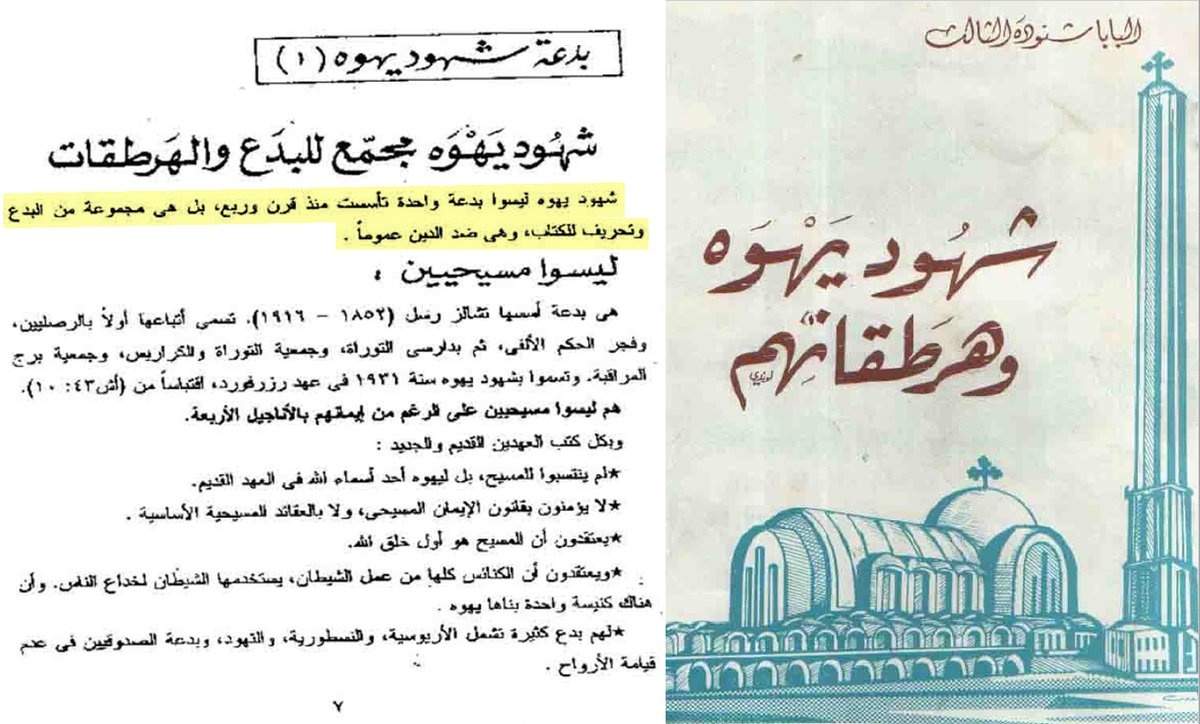 بدعة شهود يهوه (١)
شهُود يَهْوَه مجمّع للبدَع والهَرطقات
شهود يهوه ليسوا بدعة واحدة تأسست منذ قرن وربع، بل هى مجموعة من البدع
وتحريف للكتاب، وهى ضد الدين عموماً .
ليسوا مسيحيين :
هى بدعة أسسها تشالز رسل (١٨٥٢ – ١٩١٦). تسمى أتباعها أولاً بالرصليين،
وفجر الحكم الألفى، ثم بدارسى التوراة، وجمعية التوراة والكراريس، وجمعية برج
المراقبة. وتسموا بشهود يهوه سنة ١٩٣١ فى عهد رزرفورد، اقتباساً من (أش٤٣: ١٠).
هم ليسوا مسيحيين على الرغم من إيمانهم بالأناجيل الأربعة.
وبكل كتب العهدين القديم والجديد :
★لم ينتسبوا للمسيح، بل ليهوه أحد أسماء الله فى العهد القديم.
★لا يؤمنون بقانون الإيمان المسيحى، ولا بالعقائد المسيحية الأساسية .
★يعتقدون أن المسيح هو أول خلق الله.
★ويعتقدون أن الكنائس كلها من عمل الشيطان، يستخدمها الشيطان لخداع الناس. وأن
هناك كنيسة واحدة بناها يهوه .
★لهم بدع كثيرة تشمل الأريوسية، والنسطورية، والتهود، وبدعة الصدوقيين فى عدم
قيامة الأرواح .
٧
البابا شنودة الثالث
شهُود يَهْوَه
وهرَطقاتهم